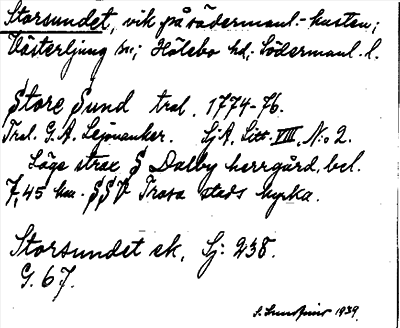 Storsundet, vik på södermanl.-kusten;
Västerljung sn; Hölebo hd; Södermanl. l.
Store Sund tral. 1774-76.
Tral. G. A. Lejonanker. SjA, Litt. VIII, N:o 2.
Läge strax S Dalby herrgård, bel.
7,45 km. SSV Trosa stads kyrka.
Storsundet ek. Sj: 238.
G. 67.
1939.